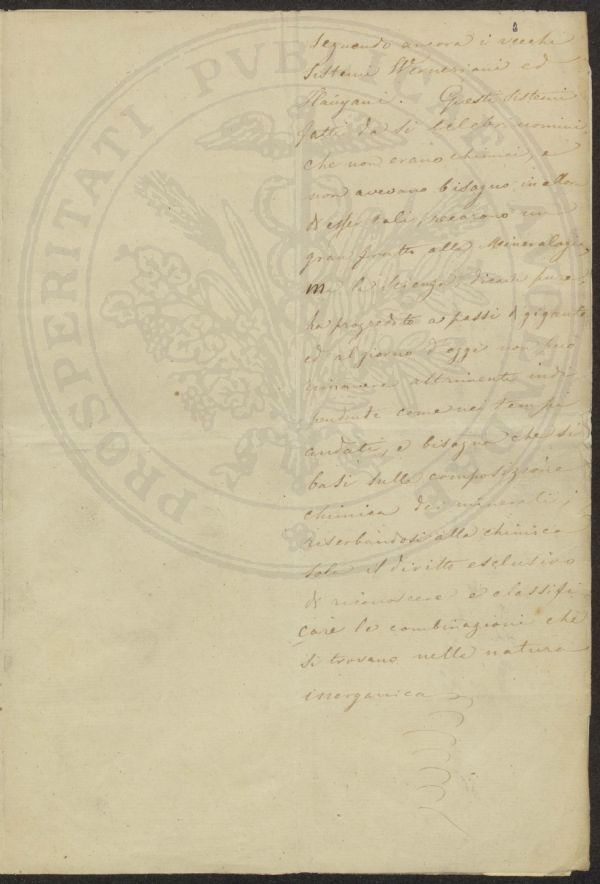 seguendo ancora i vecchi
sistemi Werneriani ed
Haüyani. Questi sistemi
fatti da sì celebri uomini
che non erano chimici, e
non avevano bisogno
di esser tali, recarono un
gran frutto alla Mineralogia,
ma la scienza, dicasi pure,
ha progredito a passi di gigante
ed al giorno d'oggi non può
rimanere altrimenti indi
pendente come nei tempi
andati, e bisogna che si
basi sulla composizione
chimica dei minerali,
riserbandosi alla chimica
sola il diritto esclusivo
di riconoscere e classifi
care le combinazioni che
si trovano nella natura
inorganica
PROSPERITATI PUBLICAE